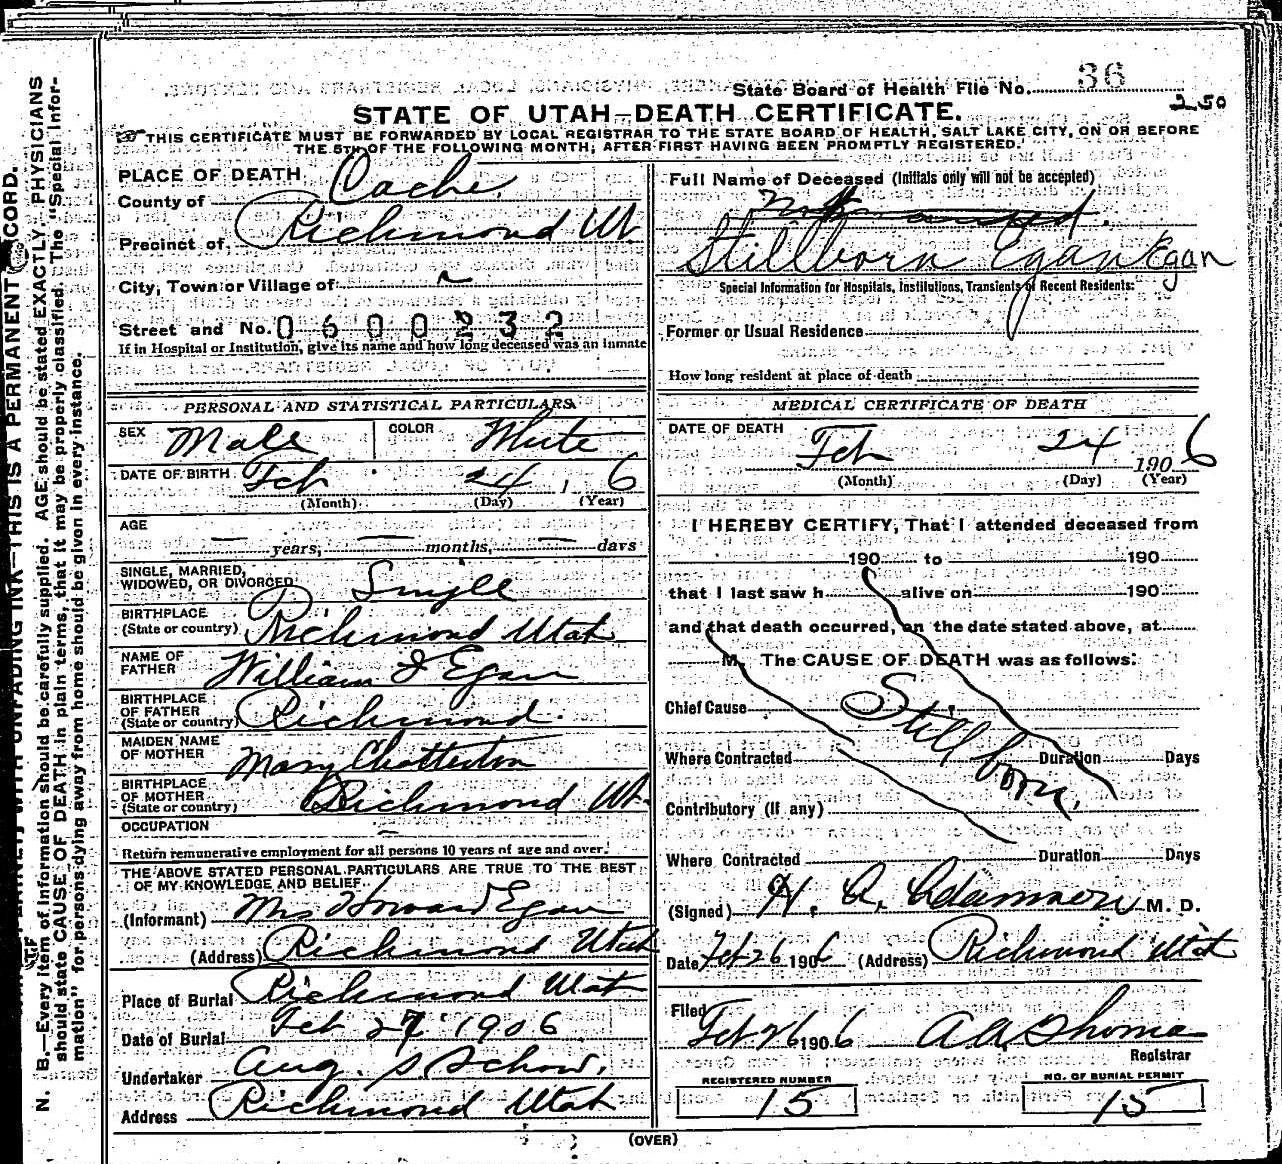 State Board of Health File No. 36
250
STATE OF UTAH—DEATH CERTIFICATE.
THIS CERTIFICATE MUST BE FORWARDED BY LOCAL REGISTRAR TO THE STATE BOARD OF HEALTH, SALT LAKE CITY, ON OR BEFORE
THE 5TH OF THE FOLLOWING MONTH; AFTER FIRST HAVING BEEN PROMPTLY REGISTERED.
PLACE OF DEATH
County of Cache
Precinct of Richmond Ut.
City, Town or Village of
Street and No. 0 6 0 0 2 3 2
If in Hospital or Institution, give its name and how long deceased was an inmate
PERSONAL AND STATISTICAL PARTICULARS
SEX Male COLOR White
DATE OF BIRTH Feb 24, 6
(Month) (Day) (Year)
AGE
— years, — months, — days
SINGLE, MARRIED,
WIDOWED, OR DIVORCED Single
BIRTHPLACE
(State or country) Richmond Utah
NAME OF
FATHER William I Egan
BIRTHPLACE
OF FATHER
(State or country) Richmond.
MAIDEN NAME
OF MOTHER Mary Chatterton
BIRTHPLACE
OF MOTHER
(State or country) Richmond Ut.
OCCUPATION —
Return remunerative employment for all persons 10 years of age and over.
THE ABOVE STATED PERSONAL PARTICULARS ARE TRUE TO THE BEST
OF MY KNOWLEDGE AND BELIEF.
(Informant) Mrs Howard Egan
(Address) Richmond Utah
Place of Burial Richmond Utah
Date of Burial Feb 27 1906
Undertaker Aug. S. Schow,
Address Richmond Utah
Full Name of Deceased (Initials only will not be accepted)
Stillborn Egan Egan
Special Information for Hospitals, Institutions, Transients of Recent Residents:
Former or Usual Residence
How long resident at place of death
MEDICAL CERTIFICATE OF DEATH
DATE OF DEATH
Feb 24 1906
(Month) (Day) (Year)
I HEREBY CERTIFY, That I attended deceased from
190 to 190
that I last saw h alive on 190
and that death occurred, on the date stated above, at
M. The CAUSE OF DEATH was as follows:
Chief Cause Stillborn.
Where Contracted Duration Days
Contributory (if any)
Where Contracted Duration Days
(Signed) H. A. Adamson M. D.
Date Feb 26 1906 (Address) Richmond Utah
Filed
Feb 26 1906 A A Thomas
Registrar
REGISTERED NUMBER
15
NO. OF BURIAL PERMIT
15
(OVER)
N. B.—Every item of information should be carefully supplied. AGE should be stated EXACTLY. PHYSICIANS
should state CAUSE OF DEATH in plain terms, that it may be properly classified. The "Special Infor-
mation" for persons dying away from home should be given in every instance.
WITH UNFADING INK—THIS IS A PERMANENT